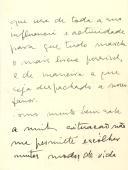 que use de toda a sua
influencia e actividade
para que tudo marche
o mais breve possivel,
e de maneira a que
seja despachado a nosso
favor.
como muito bem sabe
a minha situação não
me permite escolher
muitos modos de vida